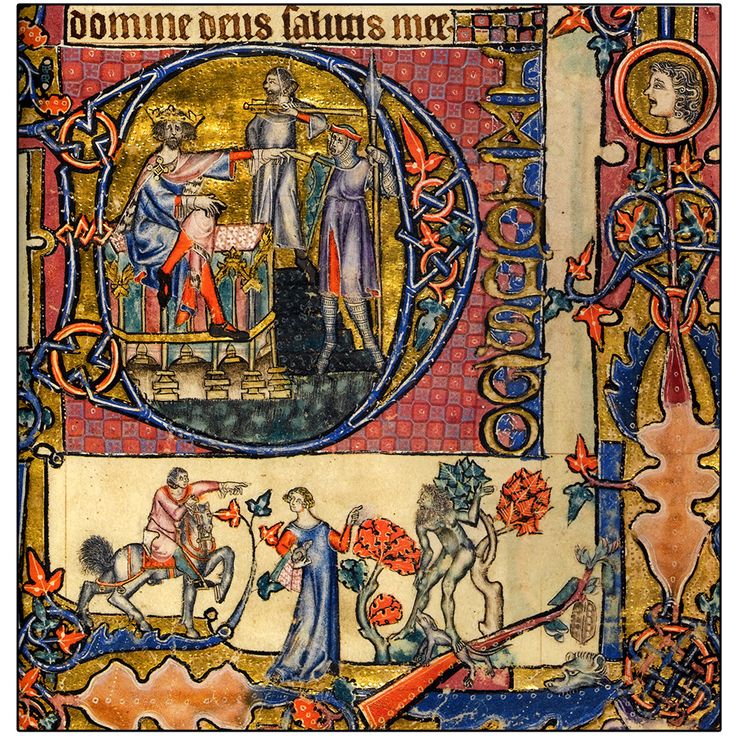 domine deus salutis mee
D
IXICUSTO